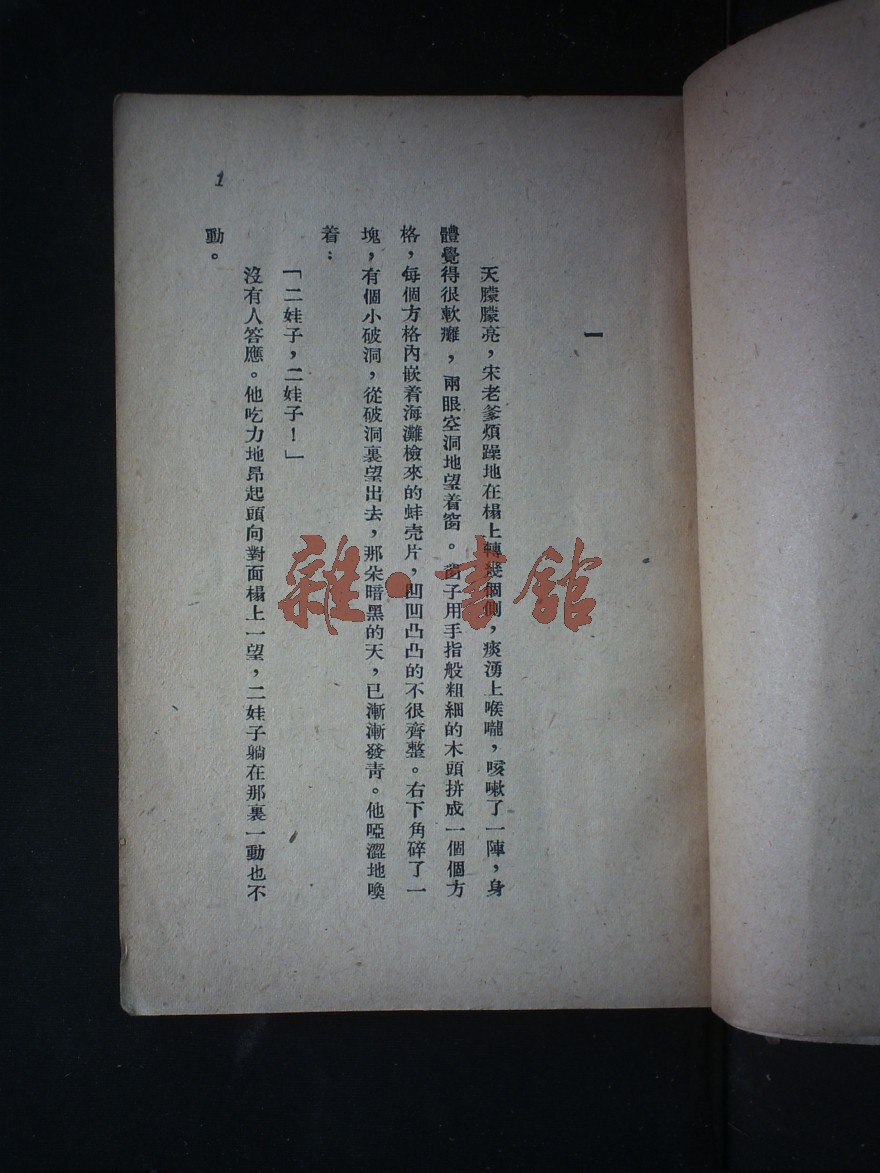 一
天朦朦亮，宋老爹煩躁地在榻上轉幾個側，痰湧上喉嚨，咳嗽了一陣，身
體覺得很軟癱，兩眼空洞地望着窗。窗子用手指般粗細的木頭拼成一個個方
格，每個方格內嵌着海灘檢來的蚌壳片，凹凹凸凸的不很齊整。右下角碎了一
塊，有個小破洞，從破洞裏望出去，那朵暗黑的天，已漸漸發青。他啞澀地喚
着：
「二娃子，二娃子！」
沒有人答應。他吃力地昂起頭向對面榻上一望，二娃子躺在那裏一動也不
動。
1
雜·書館